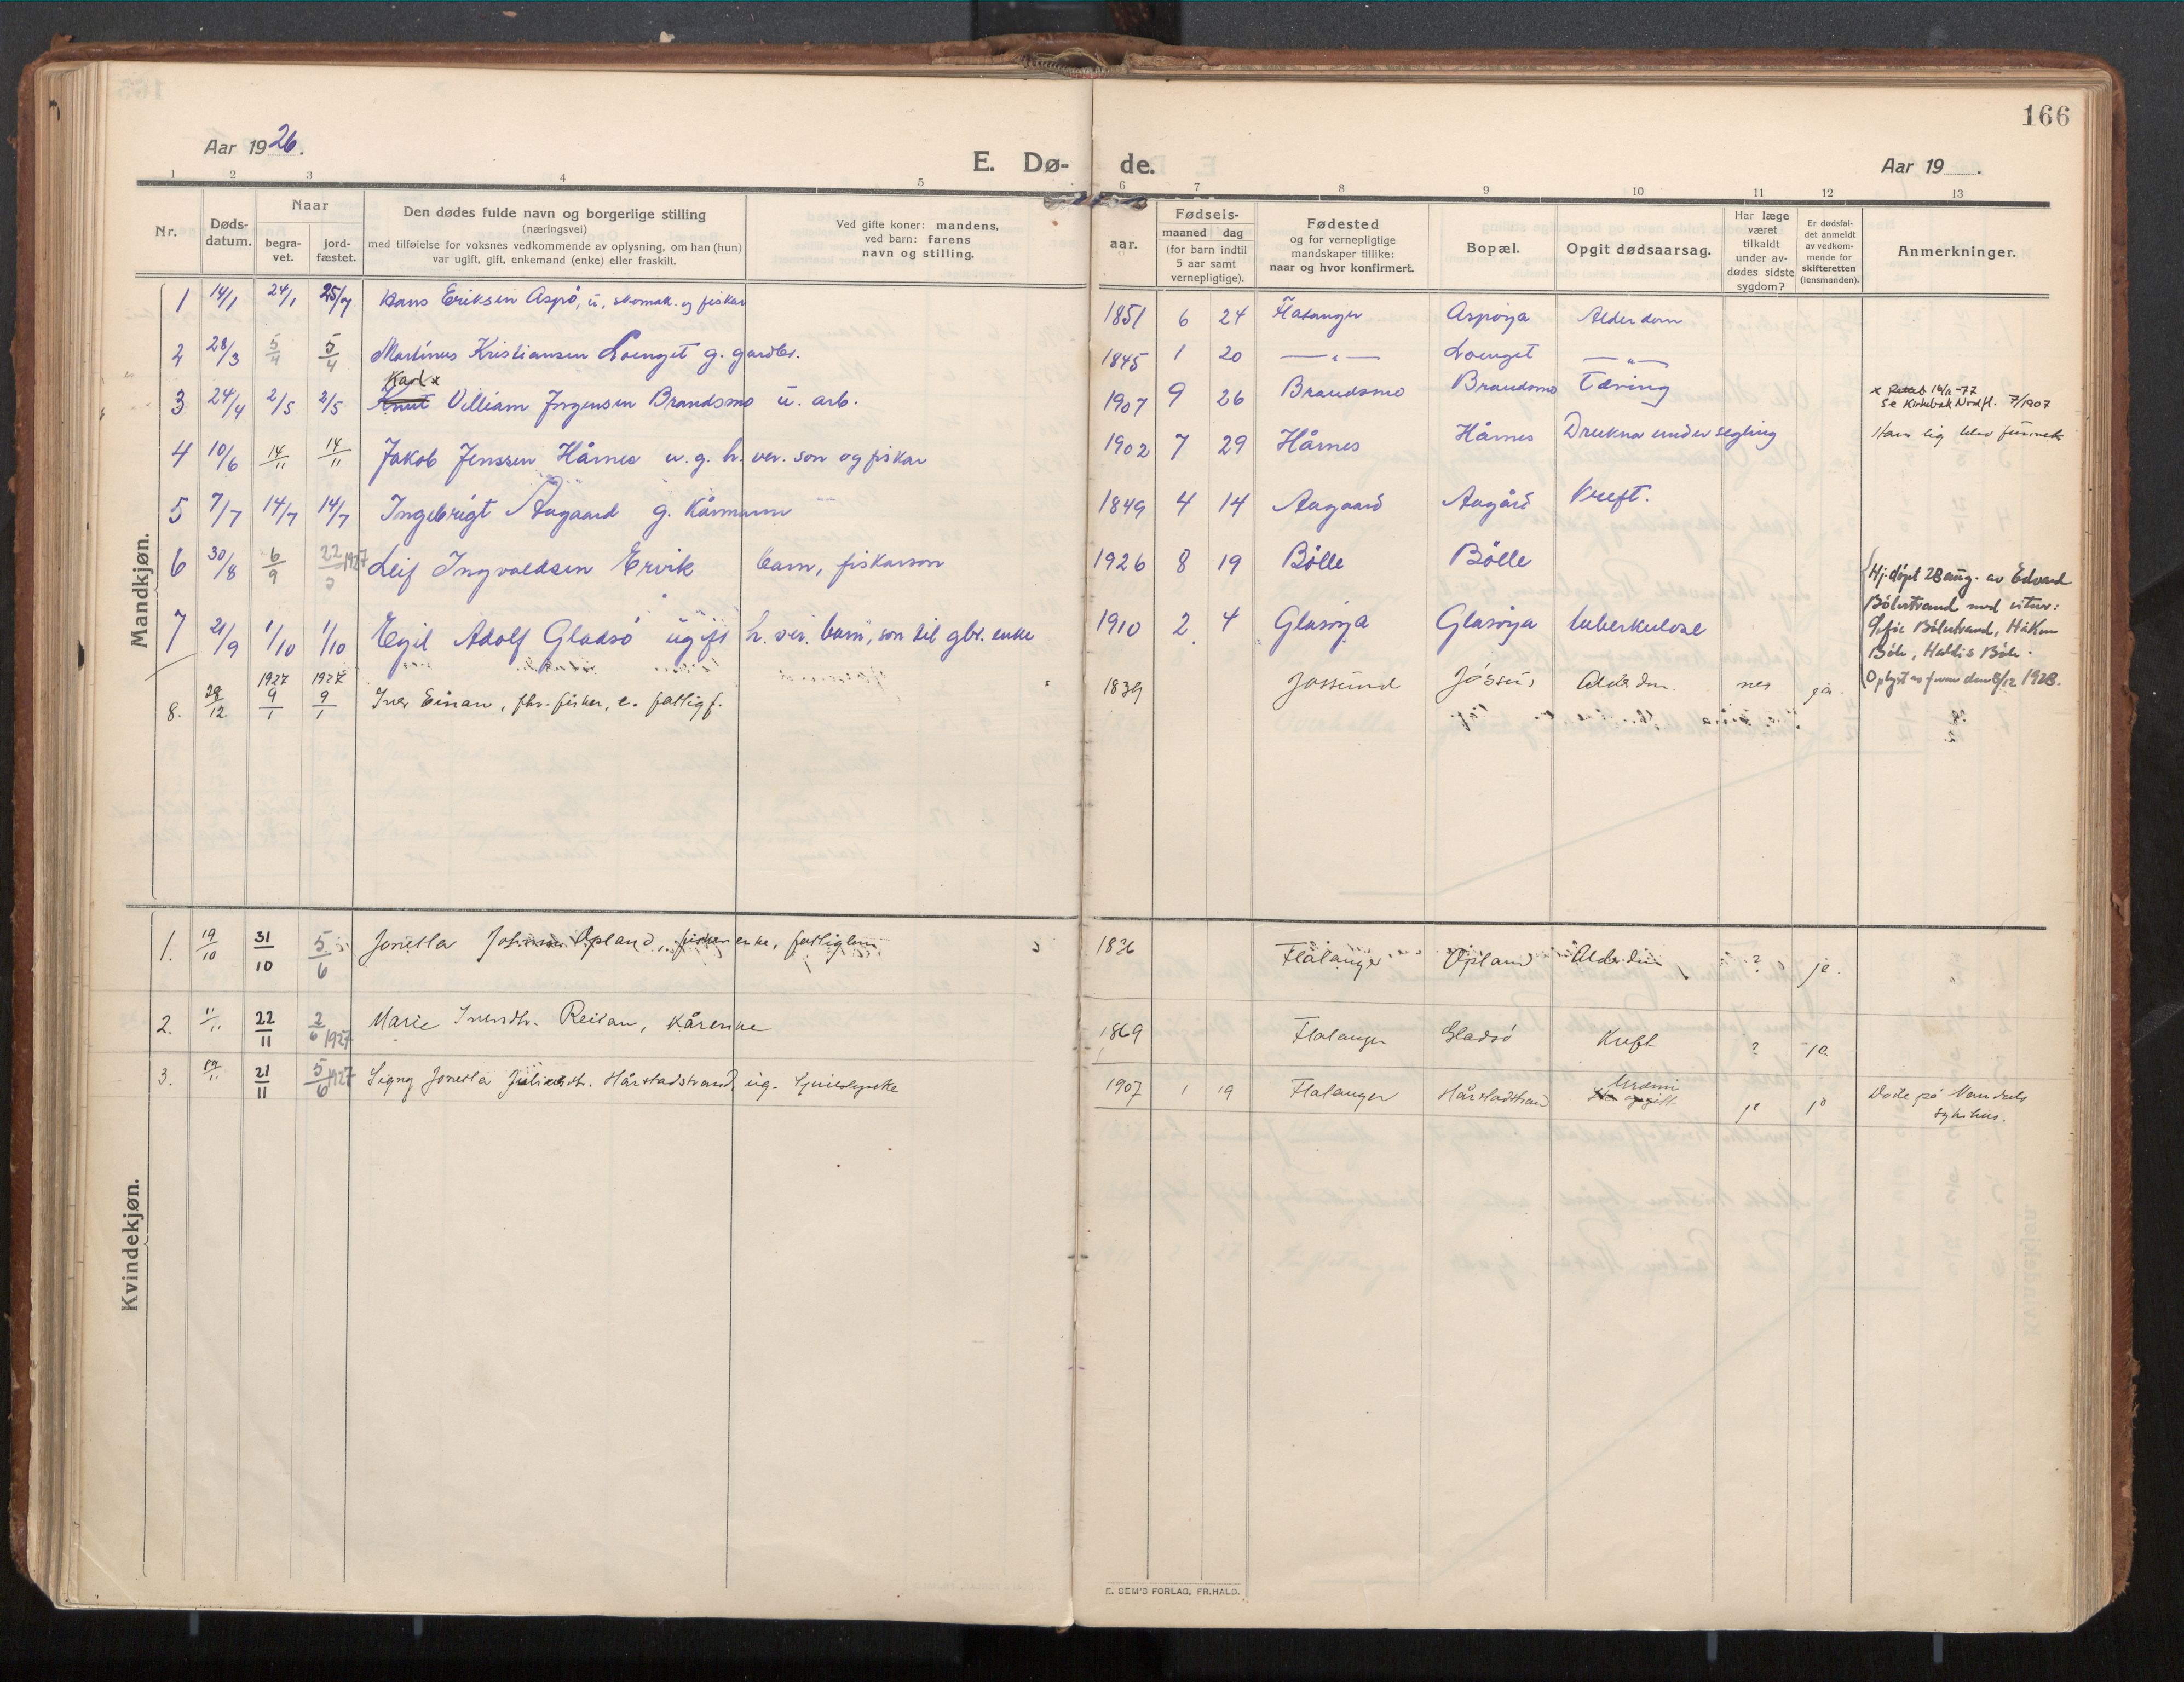 166
Aar 1926.
E. Dø-
de.
Aar 19 .
1 2 3 4 5 6 7 8 9 10 11 12 13
Nr.
Døds-
datum.
Naar
begra-
vet.
jord-
fæstet.
Den dødes fulde navn og borgerlige stilling
(næringsvei)
med tilføielse for voksnes vedkommende av oplysning, om han (hun)
var ugift, gift, enkemand (enke) eller fraskilt.
Ved gifte koner: mandens,
ved barn: farens
navn og stilling.
aar.
Fødsels-
maaned dag
(for barn indtil
5 aar samt
vernepligtige).
Fødested
og for vernepligtige
mandskaper tillike:
naar og hvor konfirmert.
Bopæl.
Opgit dødsaarsag.
Har læge
været
tilkaldt
under av-
dødes sidste
sygdom?
Er dødsfal-
det anmeldt
av vedkom-
mende for
skifteretten
(lensmanden).
Anmerkninger.
Mandkjøn.
1 14/1 24/1 25/7 Hans Eriksen Aspö, u. skomak. og fiskar 1851 6 24 Flatanger Aspøya Alderdom
2 28/3 5/4 5/4 Martinus Kristiansen Loenget g. gardbr. 1845 1 20 —"— Loenget —"—
Karl x
3 24/4 2/5 2/5 Knut Villiam Jørgensen Brandsmo u. arb. 1907 9 26 Brandsmo Brandsmo Tæring
x Rettet 16/11-77
Se Kirkebok Nordfl. 7/1907
4 10/6 14/11 14/11 Jakob Jenssen Hårnes u. g. h. ver. son og fiskar 1902 7 29 Hårnes Hårnes Drukna under segling Hans lig blev funnet
5 7/7 14/7 14/7 Ingebrigt Aagaard g. Kårmann 1849 4 14 Aagaard Aagård Kreft.
6 30/8 6/9 22/5 1927 Leif Ingvaldsen Ervik barn, fiskarson 1926 8 19 Bölle Bölle
Hj. døpt 28 aug. av Edvard
Bölestrand med vitner:
Bölestrand, Håkon
Böle, Haldis Böle.
Oplyst av faren den 8/12 1928.
7 21/9 1/10 1/10 Egil Adolf Gladsö ugift h. ver. barn, son til gbr. enke 1910 2 4 Glasöya Glasöya tuberkulose
8. 29/12 1927 9/1 1927 9/1 Iver Einan, fhv. fisker, e. fattigf. 1839 Jøssund Jøssund Alderdom nei ja.
Kvindekjøn.
1. 19/10 31/10 5/6 Jonetta Opland, fisker enke, fattiglem 1836 Flatanger Opland Alderdom ? ja.
2. 11/11 22/11 2/6 1927 Marie Iversdtr. Reitan, Kårenke 1869 Flatanger Gladsö Kreft ? ja.
3. 12/11 21/11 5/6 1927 Signy Jonetta Juliesdtr. Hårstadstrand, ug. 1907 1 19 Flatanger Hårstadstrand Uræmi ja ja Döde på Namdals
sykehus.
E. SEM'S FORLAG, FR.HALD.